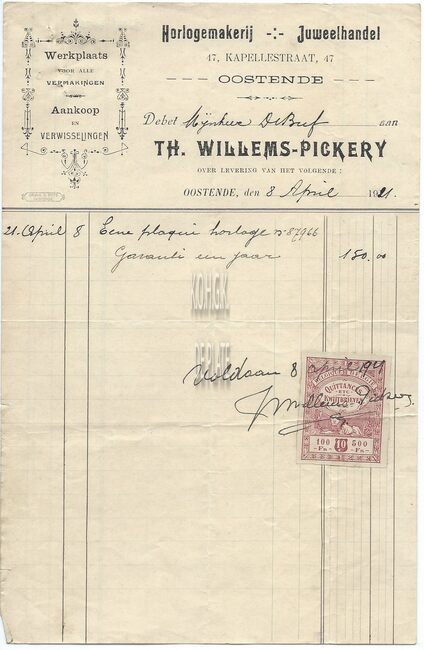 Werkplaats
VOOR ALLE
VERMAKINGEN
Aankoop
EN
VERWISSELINGEN
Horlogemakerij -:- Juweelhandel
47, KAPELLESTRAAT, 47
OOSTENDE
Debet Mijnheer De Bref aan
TH. WILLEMS-PICKERY
OVER LEVERING VAN HET VOLGENDE :
OOSTENDE, den 8 April 1921.
21. April 8 Eene plaqué horloge n° 87966
Garanti een jaar 150.00
K.O.H.G.K.
DE PLATE
Voldaan 8 april 1921
QUITTANCES
ETC
KWIJTBRIEVEN
100 10 500
Fn Fn